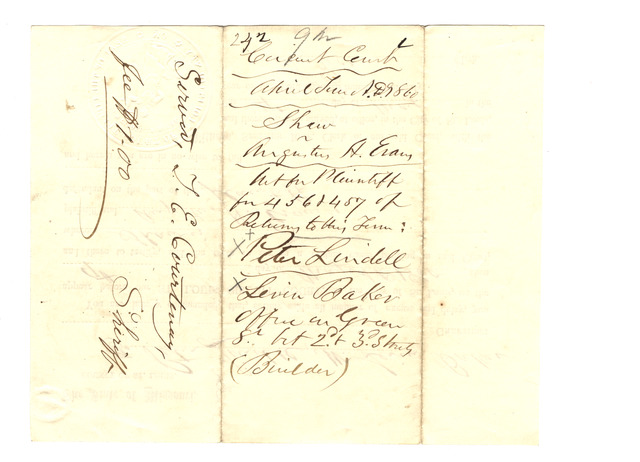 Served, T. E. Courtenay,
Sheriff
fee $1.00
292 9th
Circuit Court
April Term A.D. 1860
Shaw
v
Augustus H. Evans
Wit for Plaintiff
for 456 & 457 of
Returns to this Term:
Peter Lindell
Levin Baker
Office on Green
St. bet 2d & 3d Streets
(Builder)